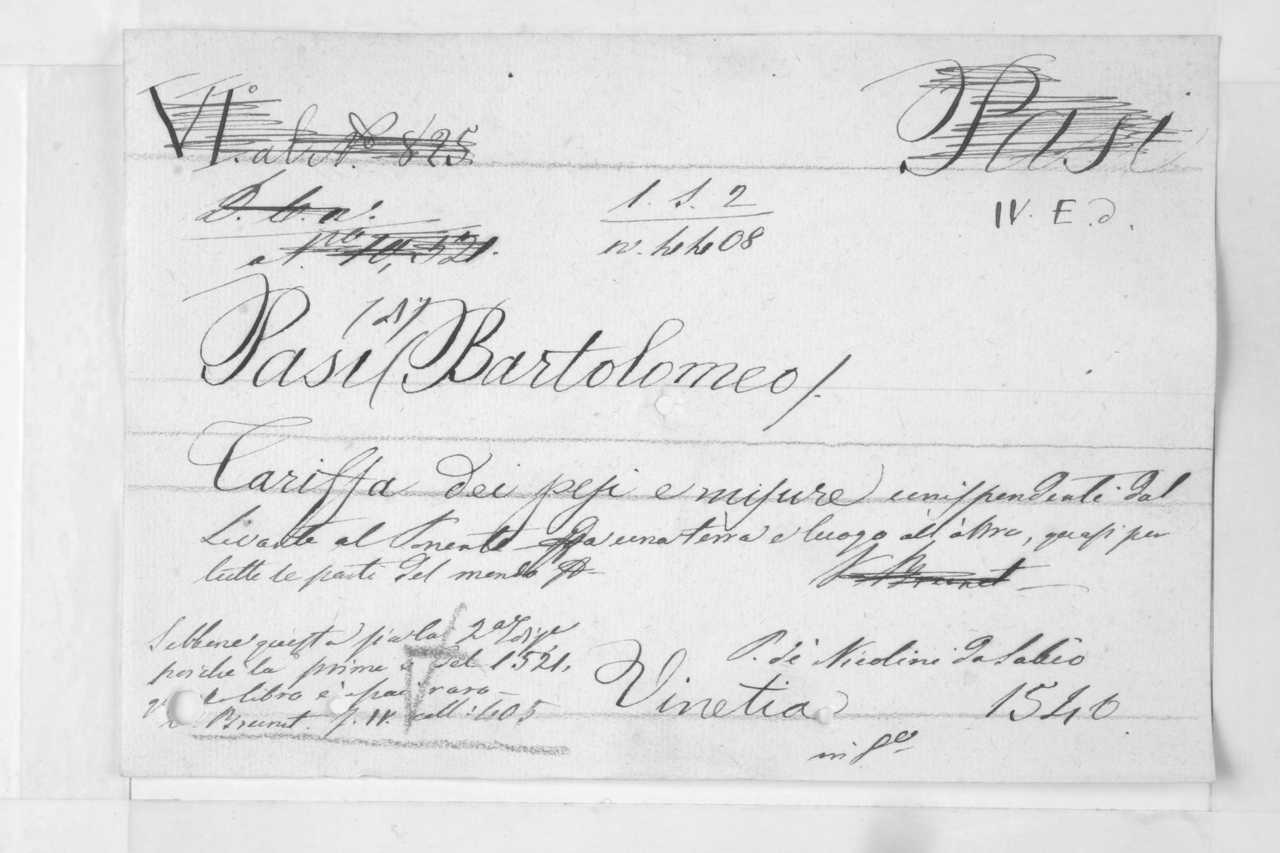 VI.° al N.° 825.
Pasi
D. C. n°.
1. S. 2
IV. E. d.
n. 4408
Pasi (di) (Bartolomeo).
Tariffa dei pesi e misure corrispondenti dal
Levante al Ponente da una terra e luogo all'altro, quasi per
tutte le parti del mondo
V. Brunet
Sebbene questa sia la 2ª Ediz.e
perche la prima è del 1521,
libro è assai raro
Brunet p. IV. coll: 405
P. de Nicolini da Sabio
Vinetia
1540
in 8°